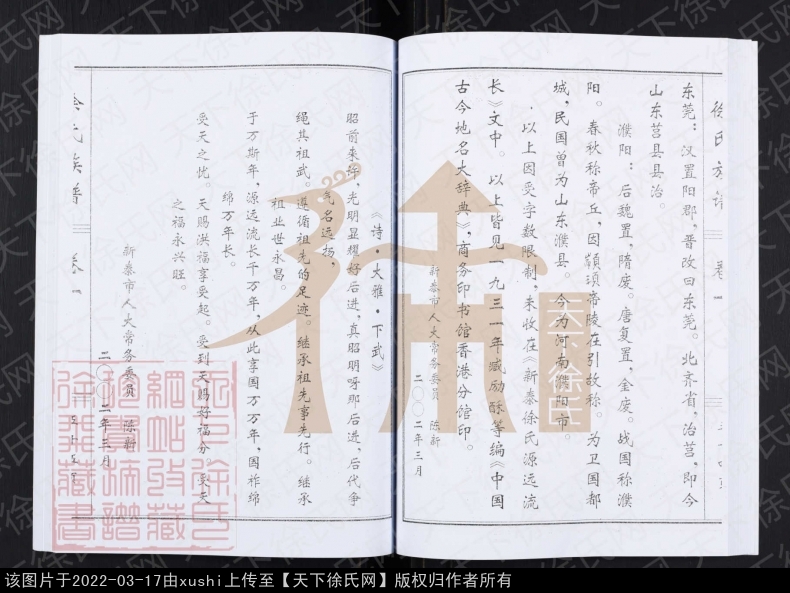 徐氏族谱 卷一
东莞：汉置阳郡，晋改曰东莞。北齐省，治莒，即今
山东莒县县治。
濮阳：后魏置，隋废。唐复置，金废。战国称濮
阳。春秋称帝丘，因颛顼帝陵在引故称。为卫国都
城，民国曾为山东濮县。今为河南濮阳市。
以上因受字数限制，未收在《新泰徐氏源远流
长》文中。以上皆见一九三一年臧励酥等编《中国
古今地名大辞典》，商务印书馆香港分馆印。
新泰市人大常务委员 陈新
二〇〇二年三月
《诗·大雅·下武》
昭前来许，光明显耀好后进，真昭明呀那后进，后代争
气名远扬，
绳其祖武。遵循祖先的足迹。继承祖先事先行。继承
祖业世永昌。
于万斯年，源远流长千万年，从此享国万万年，国祚绵
绵万年长。
受天之忧。天赐洪福享受起。受到天赐好福分。受天
之福永兴旺。
新泰市人大常务委员 陈新
二〇〇二年三月
徐氏族谱 卷一
天下徐氏
天下徐氏网
该图片于2022-03-17由xushi上传至【天下徐氏网】版权归作者所有